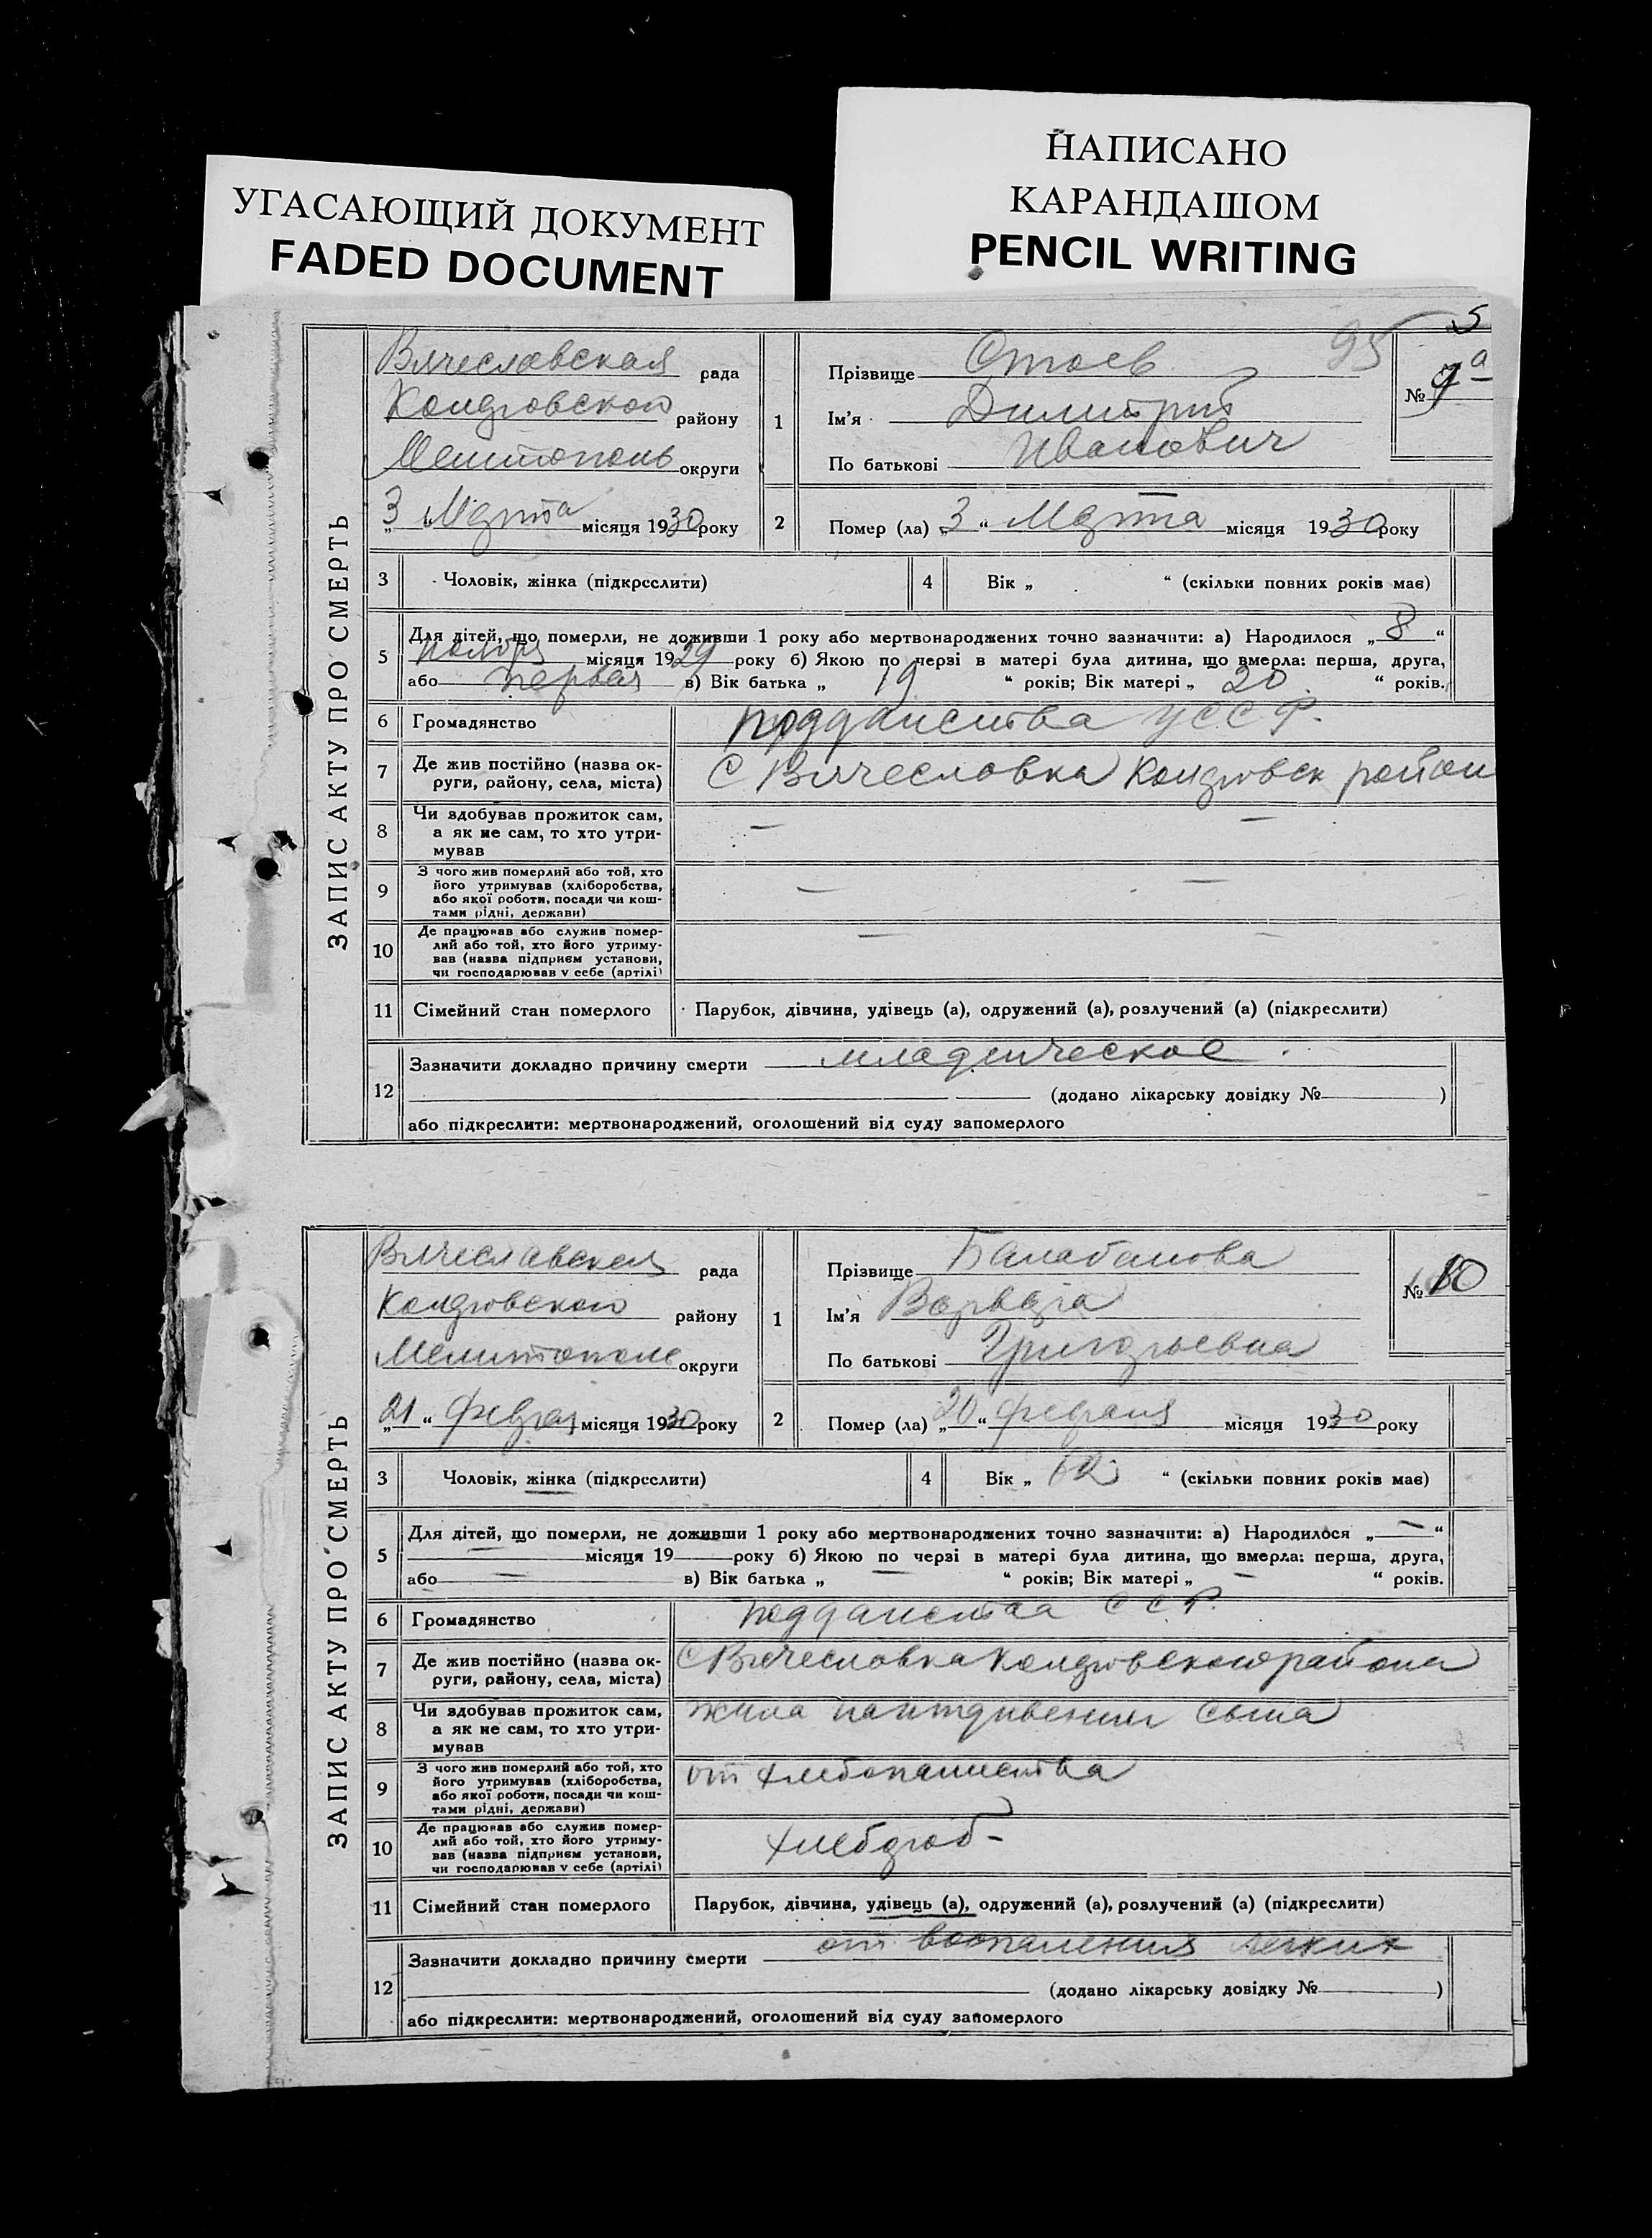 УГАСАЮЩИЙ ДОКУМЕНТ
FADED DOCUMENT
НАПИСАНО
КАРАНДАШОМ
PENCIL WRITING
5
ЗАПИС АКТУ ПРО СМЕРТЬ
Вячеславская рада
района
району
Мелитополь округи
„3 “ Марта місяця 1930 року
1
Прізвище Стоев 95
Ім'я Димитрий
По батькові Иванович
№ 9а
2 Помер (ла) „3 “ Марта місяця 1930 року
3 Чоловік, жінка (підкреслити)
4 Вік „ “ (скільки повних років має)
5 Для дітей, що померли, не доживши 1 року або мертвонароджених точно зазначити: а) Народилося „ 8 “
ноября місяця 1929 року б) Якою по черзі в матері була дитина, що вмерла: перша, друга,
або первая в) Вік батька „ 19 “ років; Вік матері „ 20 “ років.
6 Громадянство подданства УССР.
7 Де жив постійно (назва ок-
руги, району, села, міста) С Вячеславка район
8 Чи здобував прожиток сам,
а як не сам, то хто утри-
мував — —
9 З чого жив померлий або той, хто
його утримував (хліборобства,
або якої роботи, посади чи кош-
тами рідні, держави) — —
10 Де працював або служив помер-
лий або той, хто його утриму-
вав (назва підприєм установи,
чи господарював у себе (артілі) — —
11 Сімейний стан померлого Парубок, дівчина, удівець (а), одружений (а), розлучений (а) (підкреслити)
12 Зазначити докладно причину смерти младенческое
(додано лікарську довідку № )
або підкреслити: мертвонароджений, оголошений від суду запомерлого
ЗАПИС АКТУ ПРО СМЕРТЬ
Вячеславская рада
району
Мелитополь округи
„21 “ Феврал місяця 1930 року
1
Прізвище Балабанова
Ім'я Варвара
По батькові Григорьевна
№ 10
2 Помер (ла) „20 “ Февраля місяця 1930 року
3 Чоловік, жінка (підкреслити)
4 Вік „ “ (скільки повних років має)
5 Для дітей, що померли, не доживши 1 року або мертвонароджених точно зазначити: а) Народилося „ — “
— місяця 19 року б) Якою по черзі в матері була дитина, що вмерла: перша, друга,
або — в) Вік батька „ — “ років; Вік матері „ — “ років.
6 Громадянство подданства ССР.
7 Де жив постійно (назва ок-
руги, району, села, міста) С Вячеславка района
8 Чи здобував прожиток сам,
а як не сам, то хто утри-
мував жила на иждивении сына
9 З чого жив померлий або той, хто
його утримував (хліборобства,
або якої роботи, посади чи кош-
тами рідні, держави) от хлебопашества
10 Де працював або служив помер-
лий або той, хто його утриму-
вав (назва підприєм установи,
чи господарював у себе (артілі) хлебороб-
11 Сімейний стан померлого Парубок, дівчина, удівець (а), одружений (а), розлучений (а) (підкреслити)
12 Зазначити докладно причину смерти от воспаления легких
(додано лікарську довідку № )
або підкреслити: мертвонароджений, оголошений від суду запомерлого